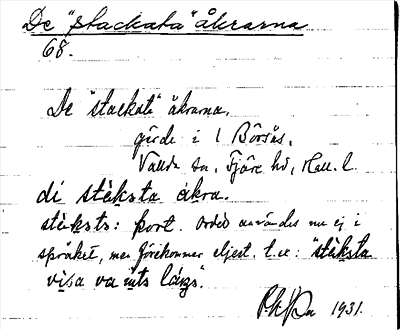 De "stackata" åkrarna
68.
De "stackata" åkrarna,
gärde i 1 Börsås,
Vallda sn, Fjäre hd, Hall. l.
di stèksta åkra.
stèksts: kort. Ordet användes nu ej i
språket, men förekommer eljest t.ex: "stèksta
visa va ints långs".
1931.